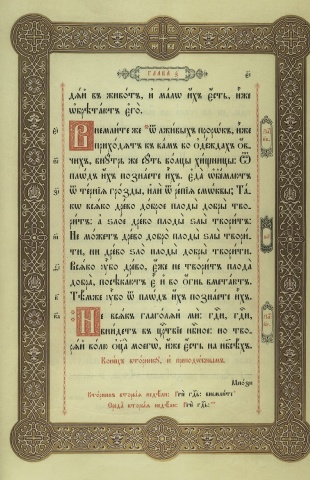 ГЛАВА з҃
дѧ́й въ живо́тъ, и҆ ма́лѡ и҆́хъ є҆́сть, и҆̀же
ѡ҆брѣта́ютъ є҆го̀.
Внемли́те же ѿ лжи́выхъ прⷪ҇рѡ́къ, и҆̀же
прихо́дѧтъ къ ва́мъ во ѻ҆де́ждахъ ѻ҆́в-
чихъ, внꙋ́трь же сꙋ́ть во́лцы хи̑щницы: ѿ
плѡ́дъ и҆́хъ позна́ете и҆̀хъ. є҆да̀ ѡ҆б̾е́млютъ
ѿ те́рнїѧ гро́зды, и҆лѝ ѿ ре́пїѧ смѡ́квы; Та́-
кѡ всѧ́ко дре́во до́брое плоды̀ дѡбры̀ тво-
ри́тъ: а҆ ѕло́е дре́во плоды̀ ѕлы̀ твори́тъ.
Не мо́жетъ дре́во добро̀ плоды̀ ѕлы̀ твори́-
ти, ни дре́во ѕло̀ плоды̀ дѡбры̀ твори́ти.
Всѧ́ко ᲂу҆̀бо дре́во, є҆́же не твори́тъ плода̀
добра̀, посѣка́ютъ є҆̀ и҆ во ѻ҆́гнь вмета́ютъ.
Тѣ́мже ᲂу҆̀бо ѿ плѡ́дъ и҆́хъ позна́ете и҆̀хъ.
Не всѧ́къ глаго́лѧй мѝ: гдⷭ҇и, гдⷭ҇и,
вни́детъ въ црⷭ҇твїе нбⷭ҇ное: но тво-
рѧ́й во́лю ѻ҆ц҃а̀ моегѡ̀, и҆́же є҆́сть на нб҃сѣ́хъ.
Коне́цъ вто́рникꙋ, и҆ преподѡ́бнымъ.
Мно́зи
Вто́рникъ вторы́ѧ недѣ́ли: Речѐ гдⷭ҇ь: внемли́те
Среда̀ вторы́ѧ недѣ́ли: Речѐ гдⷭ҇ь: